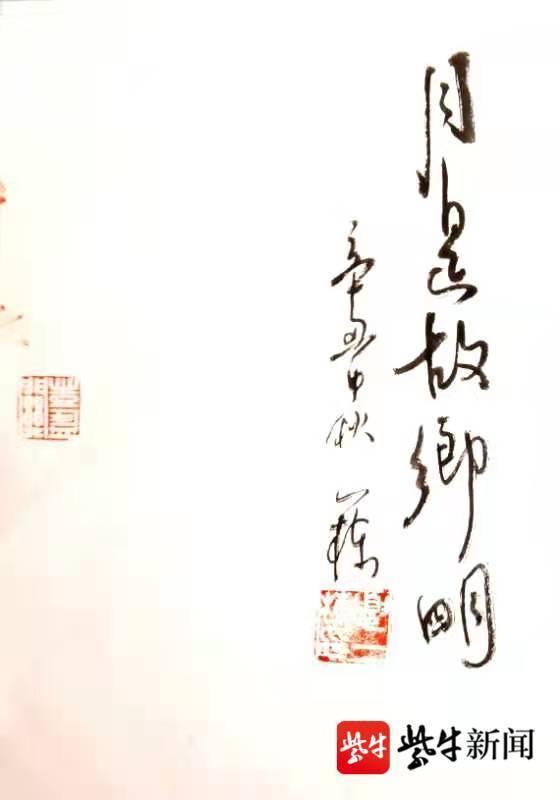 月是故鄉明
辛丑中秋
紫牛 紫牛新闻